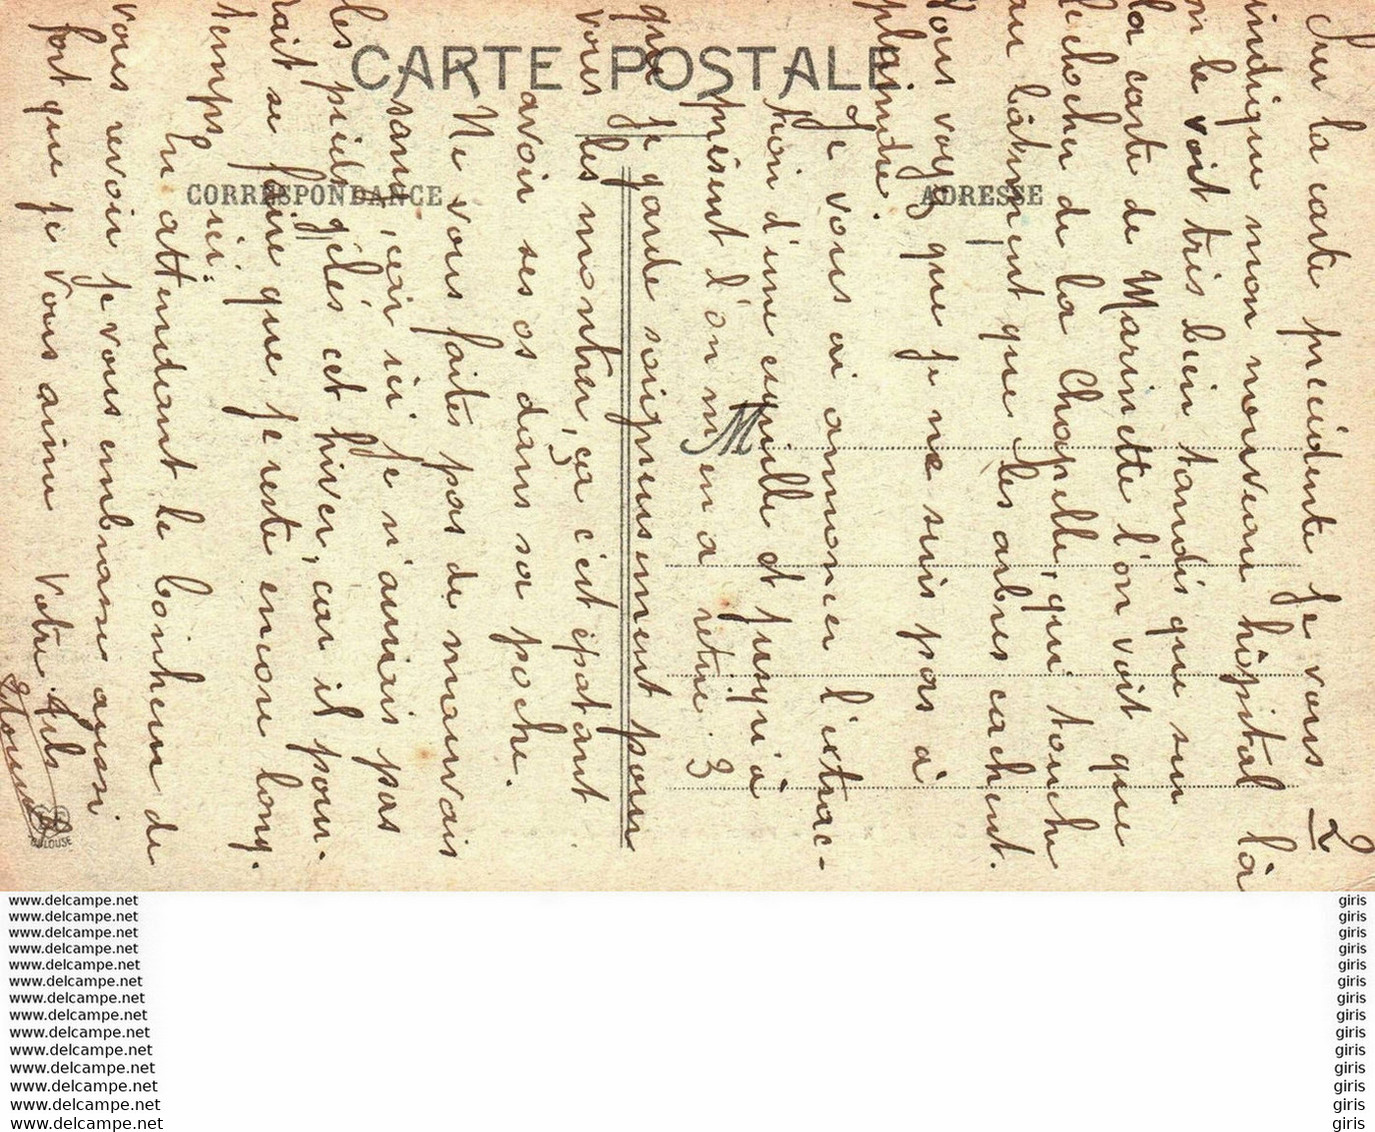 CARTE POSTALE
CORRESPONDANCE
ADRESSE
M
2
Sur la carte précédente je vous
indique mon nouveau hôpital là
on le voit très bien tandis que sur
la carte de Marinette l'on voit que
le clocher de la Chapelle, qui touche
au bâtiment que les arbres cachent.
Vous voyez que je ne suis pas à
plaindre.
Je vous ai annoncer l'extrac-
tion d'une esquille et jusqu'à
présent l'on m'en a retiré 3
que je garde soigneusement pour
vous les montrer, ça c'est épatant
avoir ses os dans sa poche.
Ne vous faites pas de mauvais
sang, car ici je n'aurais pas
les pieds gelés cet hiver, car il pour-
rait se faire que je reste encore long-
temps ici.
En attendant le bonheur de
vous revoir je vous embrasse aussi
fort que je vous aime Votre fils
TOULOUSE
www.delcampe.net giris
www.delcampe.net giris
www.delcampe.net giris
www.delcampe.net giris
www.delcampe.net giris
www.delcampe.net giris
www.delcampe.net giris
www.delcampe.net giris
www.delcampe.net giris
www.delcampe.net giris
www.delcampe.net giris
www.delcampe.net giris
www.delcampe.net giris
www.delcampe.net giris